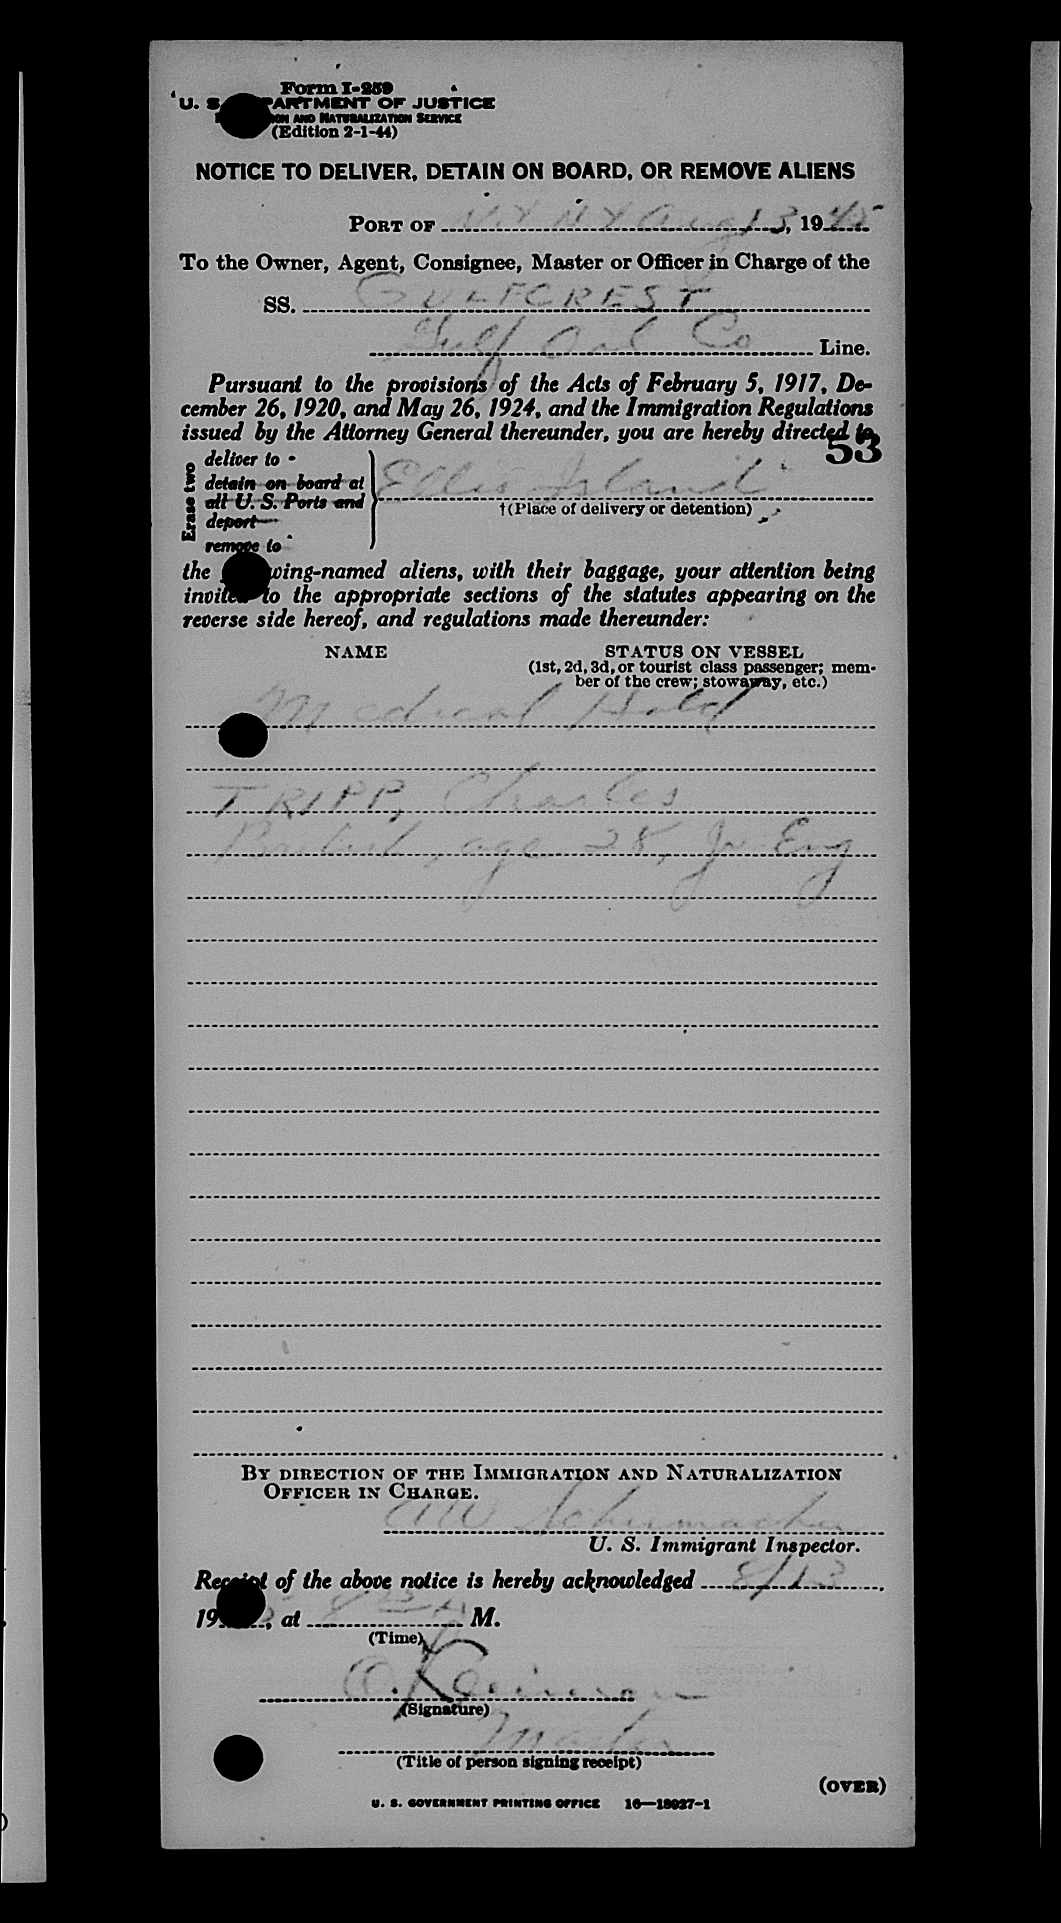 Form I-259
U. S. DEPARTMENT OF JUSTICE
IMMIGRATION AND NATURALIZATION SERVICE
(Edition 2-1-44)
NOTICE TO DELIVER, DETAIN ON BOARD, OR REMOVE ALIENS
PORT OF N.Y N Y Aug 13, 1945
To the Owner, Agent, Consignee, Master or Officer in Charge of the
SS. GULFCREST
Gulf Oil Co Line.
Pursuant to the provisions of the Acts of February 5, 1917, De-
cember 26, 1920, and May 26, 1924, and the Immigration Regulations
issued by the Attorney General thereunder, you are hereby directed to
53
Erase two
deliver to
detain on board at
all U. S. Ports and
deport
remove to
Ellis Island
†(Place of delivery or detention)
the following-named aliens, with their baggage, your attention being
invited to the appropriate sections of the statutes appearing on the
reverse side hereof, and regulations made thereunder:
NAME STATUS ON VESSEL
(1st, 2d, 3d, or tourist class passenger; mem-
ber of the crew; stowaway, etc.)
Medical Hold
TRIPP, Charles
British, age 28, Jr Eng
BY DIRECTION OF THE IMMIGRATION AND NATURALIZATION
OFFICER IN CHARGE.
Schumacher
U. S. Immigrant Inspector.
Receipt of the above notice is hereby acknowledged 8/13,
19 , at M.
(Time)
(Signature)
Master
(Title of person signing receipt)
(OVER)
U. S. GOVERNMENT PRINTING OFFICE 16—18027-1